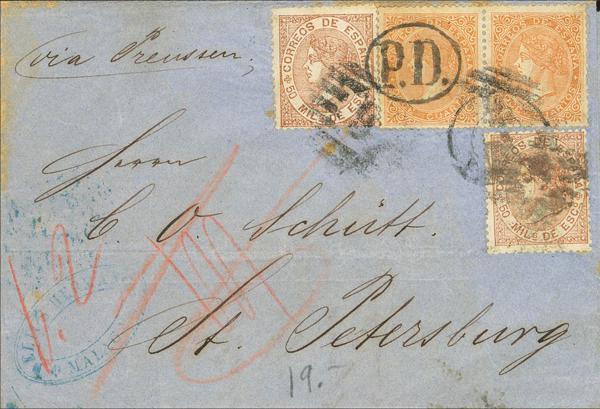 via Preussen.
CORREOS DE ESPAÑA
50 MILS DE ESC
P.D.
CORREOS DE ESPA
CORREOS DE ESPA
50 MILS DE ESCO
Herrn
C. O. Schütt.
St. Petersburg
MAL
19.-